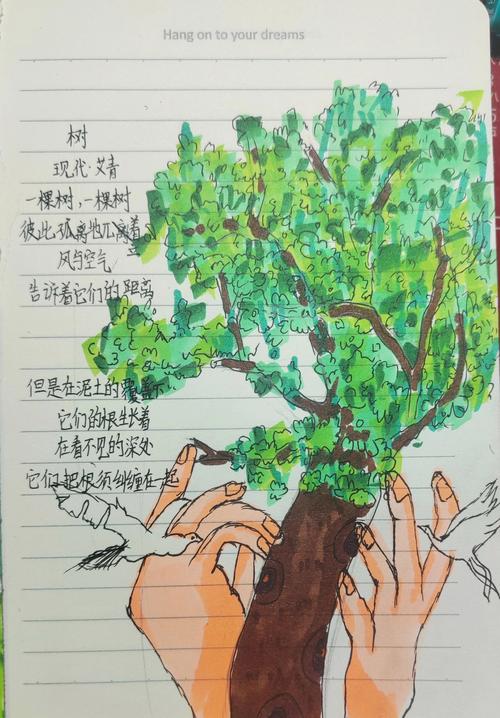 Hang on to your dreams
树
现代·艾青
一棵树，一棵树
彼此孤离地兀离着
立
风与空气
告诉着它们的距离
但是在泥土的覆盖下
它们的根生长着
在看不见的深处
它们把根须纠缠在一起